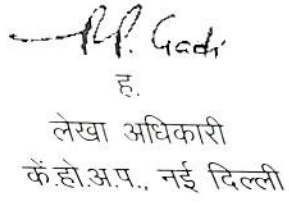 Gadi
ह.
लेखा अधिकारी
कें.हो.अ.प., नई दिल्ली